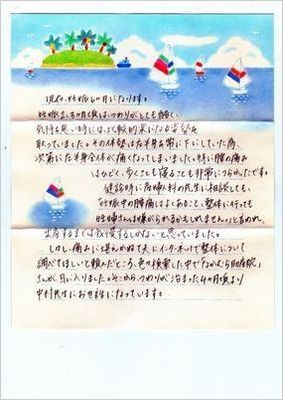 現在、妊娠6か月になります。
妊娠3、4か月頃は、つわりがとても酷く、
気持ち悪い時には、比較的楽になる姿勢を
取っていました。その体勢は左半身を常に下にしていた為、
次第に左半身全体が痛くなってしまいました。特に腰の痛み
はひどく、歩くことも寝ることも非常につらかったです。
健診時に産婦人科の先生に相談しても、
妊娠中の腰痛はよくあること、整体に行っても
妊婦さんは嫌がられるかもしれません。」と言われ、
出産するまでは我慢するしかないと思っていました。
しかし、痛みに堪えかねて夫にインターネットで整体について
調べてほしいと頼んだところ、色々検索した中で「なかむら助産院」
さんが目に入りました。そこから、つわりが治まった4か月頃より
中村先生にお世話になっています。